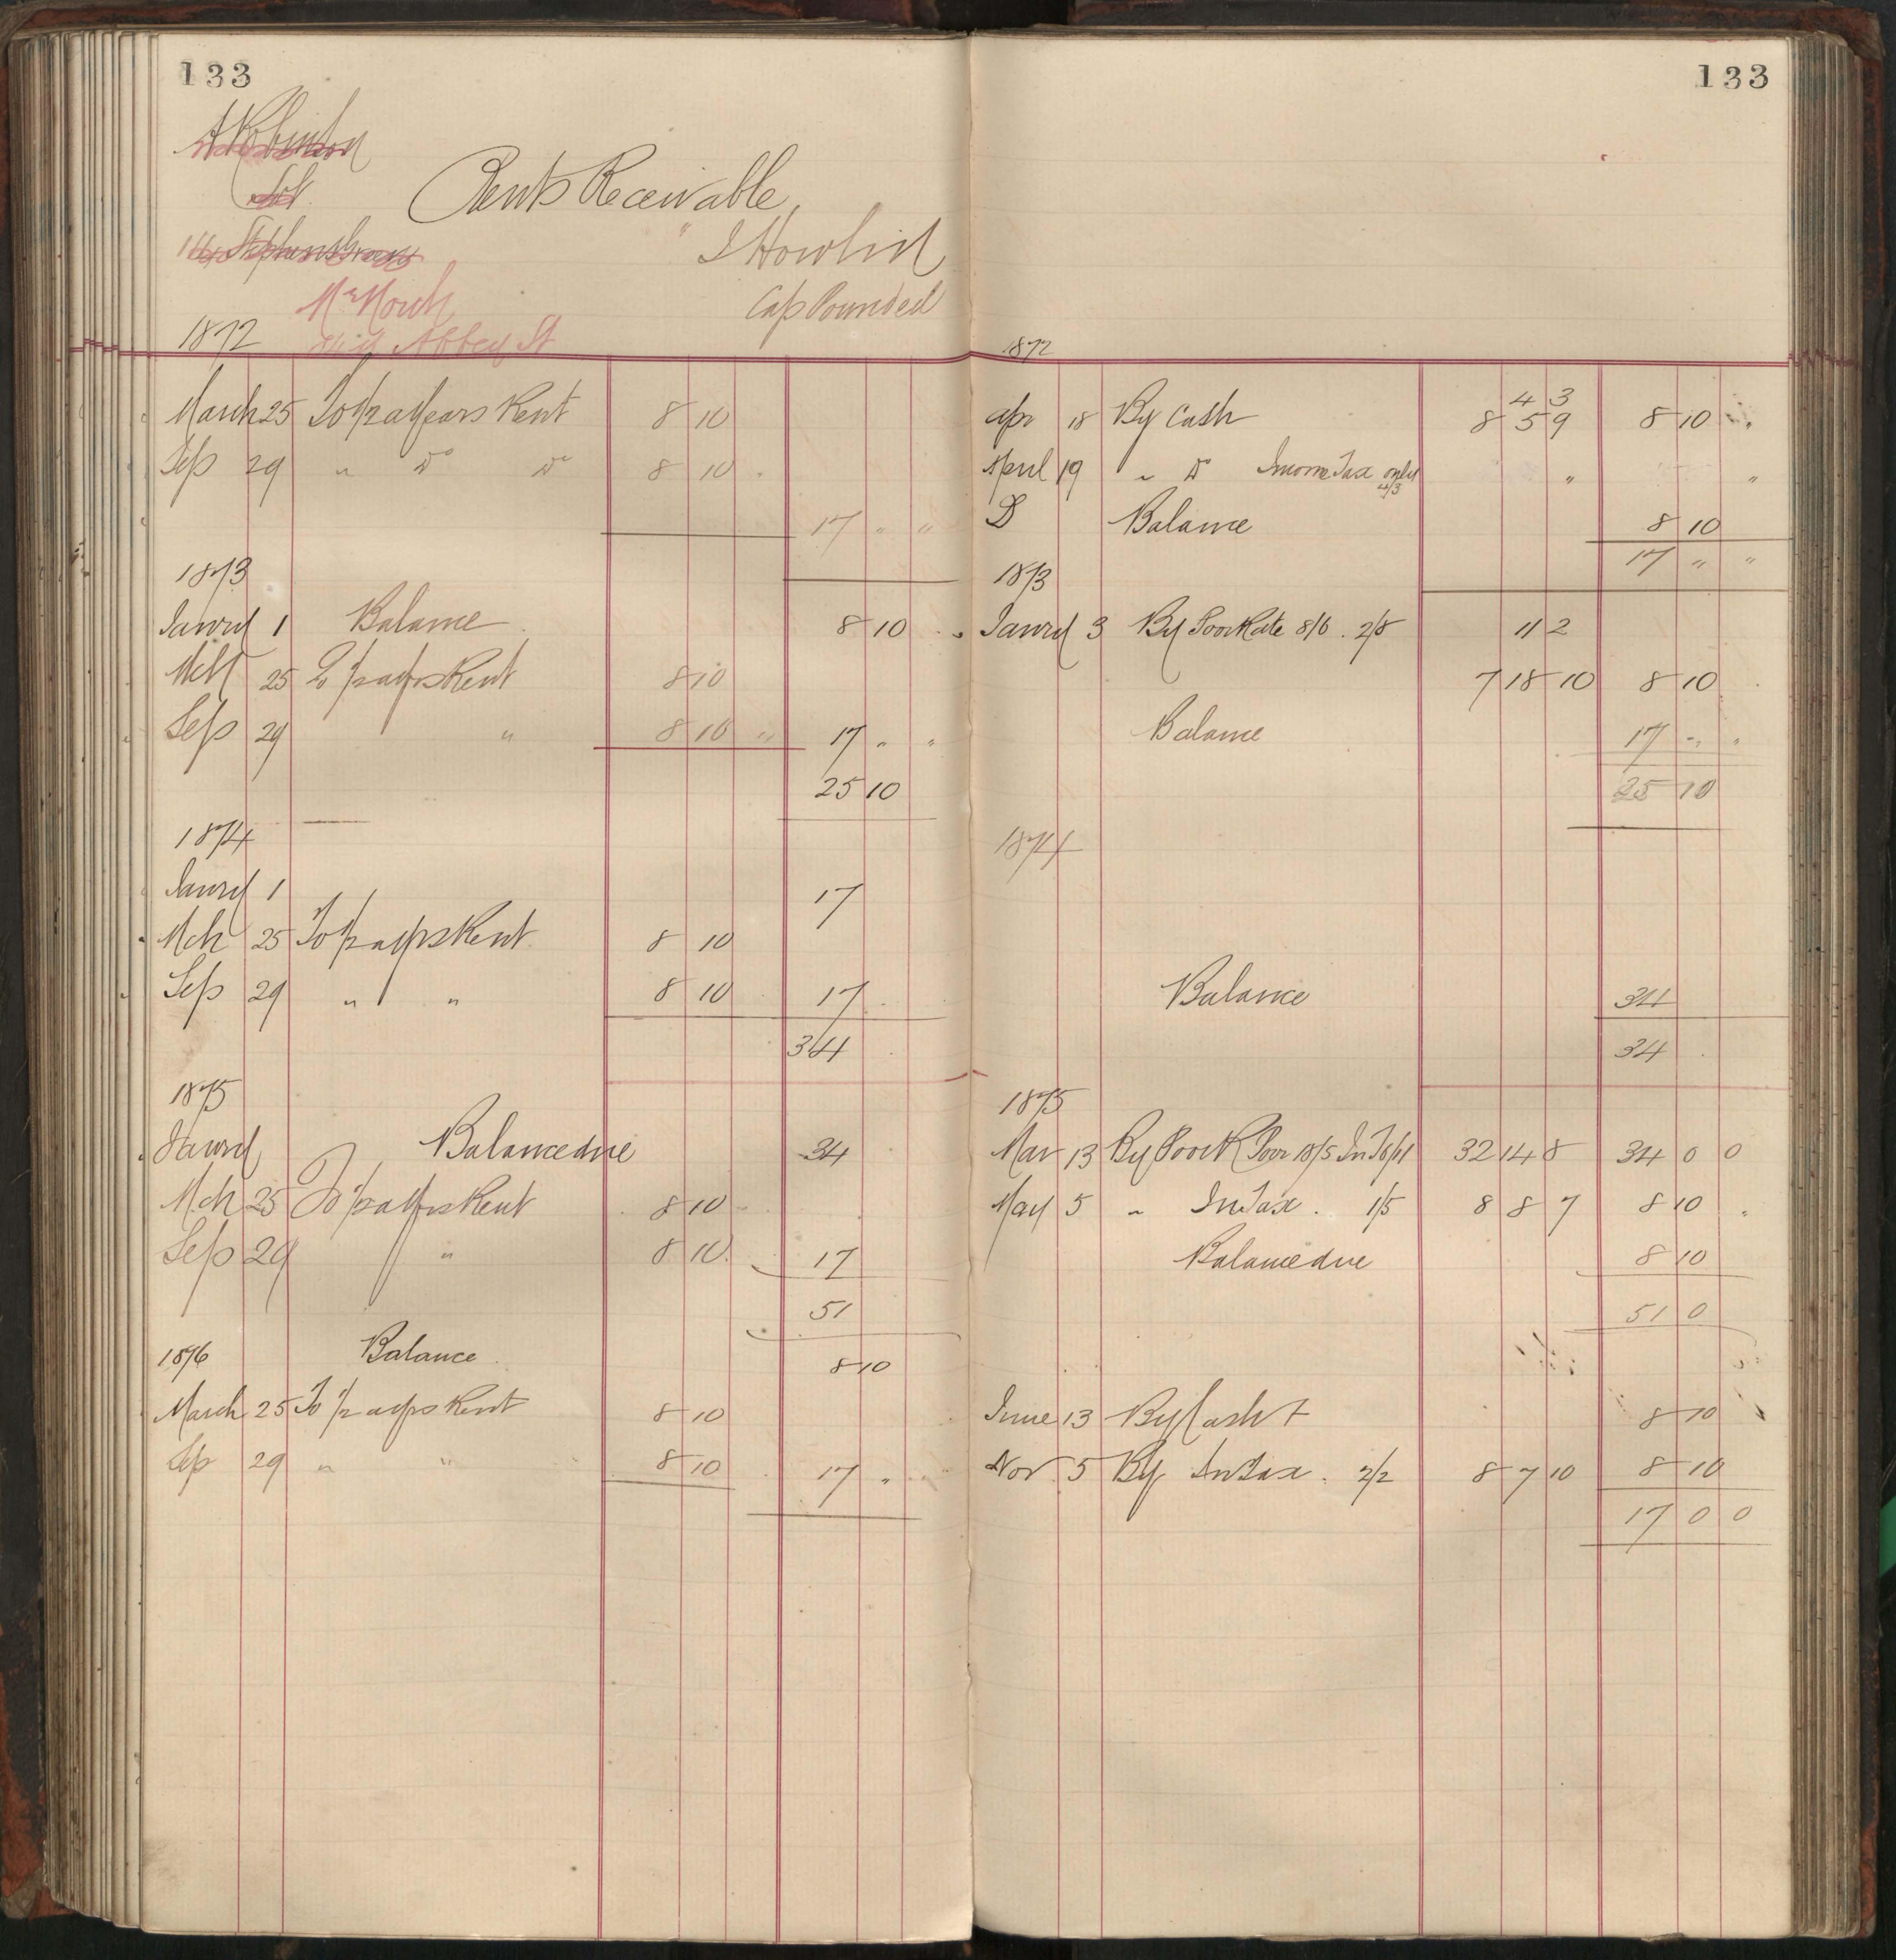 133
A Robinson
Sol.
116 Stephens Green
Rents Receivable
" J Howlin
Mr. North
Abbey St
Cap Pounded
1872
March 25 To 1/2 a years Rent 8 10
Sep 29 " Do Do 8 10 "
17 " "
1873
Janry 1 Balance 8 10 "
Mch 25 To 1/2 a yrs Rent 8 10
Sep 29 " 8 10 " 17 " "
25 10
1874
Janry 1 17
Mch 25 To 1/2 a yrs Rent 8 10
Sep 29 " " 8 10 17
34
1875
Janry Balance due 34
Mch 25 To 1/2 a yrs Rent 8 10
Sep 29 " 8 10 17
51
1876 Balance 8 10
March 25 To 1/2 a yrs Rent 8 10
Sep 29 " " 8 10 17 "
133
1872
4 3
Apr 18 By Cash 8 5 9 8 10 "
April 19 " Do Income Tax only 4/3 " "
Balance 8 10
17 " "
1873
Janry 3 By Poor Rate 8/6 . 2/8 11 2
7 18 10 8 10
Balance 17 " "
25 10
1874
Balance 34
34
1875
Mar 13 By Poor R Poor 18/5 In T 6/11 32 14 8 34 0 0
May 5 " In Tax . 1/5 8 8 7 8 10 "
Balance due 8 10
51 0
June 13 By Cash + 8 10
Nov 5 By In Tax . 2/2 8 7 10 8 10
17 0 0